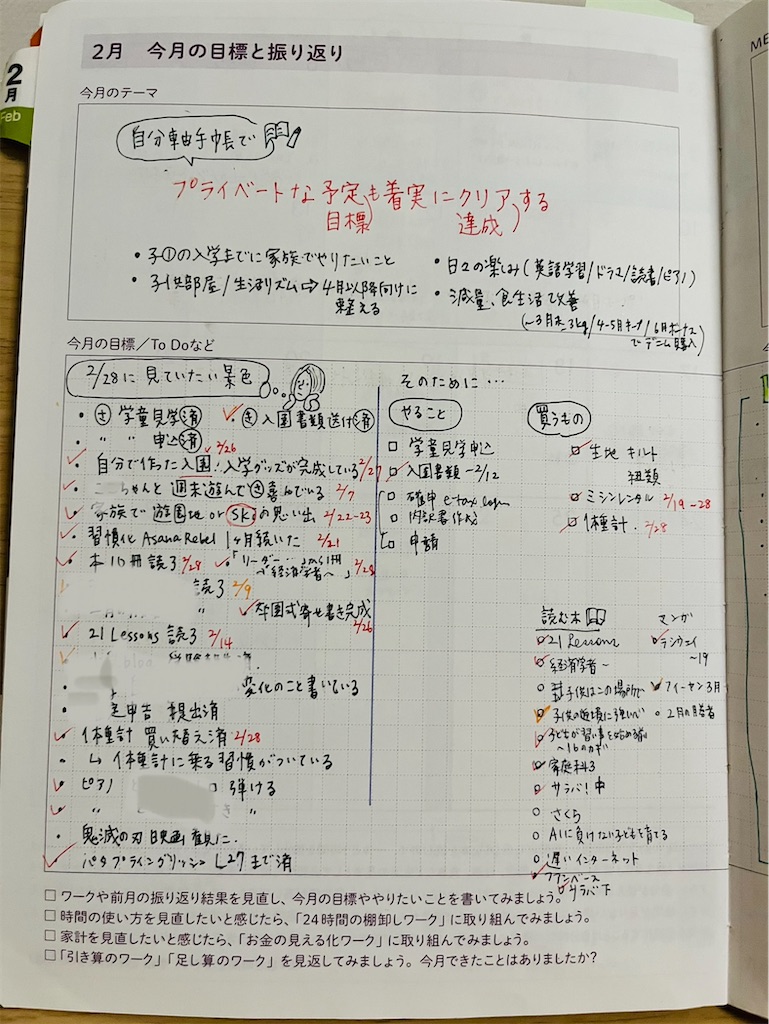 2月
Feb
2月 今月の目標と振り返り
今月のテーマ
自分軸手帳で
プライベートな予定も着実にクリアする
目標 達成
・子①の入学までに家族でやりたいこと
・子供部屋/生活リズム⇨4月以降向けに
整える
・日々の楽しみ(英語学習/ドラマ/読書/ピアノ)
・減量、食生活改善
(~3月末3kg/4-5月キープ/6月ボーナス
でデニム購入)
今月の目標/To Doなど
2/28に見ていたい景色
・学童見学済
入園書類送付済
・〃 〃 申込済 2/26
・自分で作った入園、入学グッズが完成している 2/27
ちゃんと週末遊んで 喜んでいる 2/7
・家族で遊園地or SKiの思い出 2/22-23
・習慣化 Asana Rebel 1ヶ月続いた 2/21
・本10冊読了 2/28
経済学者〜」 2/28
読了 2/9
〃
卒園式寄せ書き完成
2/26
・21 Lessons 読了 2/14
変化のこと書いている
申告 提出済
・体重計 買い替え済 2/28
↳体重計に乗る習慣がついている
・ピアノ 弾ける
・〃 〃
・鬼滅の刃 映画観に
・バタプライングリッシュ L27まで済
そのために…
やること
□ 学童見学申込
□ 入園書類 ~2/12
□ 確申 e-tax
□ 内訳書作成
□ 申請
買うもの
□ 生地 キルト
紐類
□ ミシンレンタル 2/19-28
□ 体重計 2/28
読む本
○ 21 Lessons
○ 経済学者~
子供はこの場所で
○ 子供の
○ 子どもが習い事を始める前
~16のカギ
○ 家庭科3
○ サラバ!中
○ さくら
○ AIに負けない子どもを育てる
○ 遅いインターネット
サラバ下
マンガ
~19
3月
○ 2月の勝者
□ ワークや前月の振り返り結果を見直し、今月の目標ややりたいことを書いてみましょう。
□ 時間の使い方を見直したいと感じたら、「24時間の棚卸しワーク」に取り組んでみましょう。
□ 家計を見直したいと感じたら、「お金の見える化ワーク」に取り組んでみましょう。
□ 「引き算のワーク」「足し算のワーク」を見返してみましょう。今月できたことはありましたか?